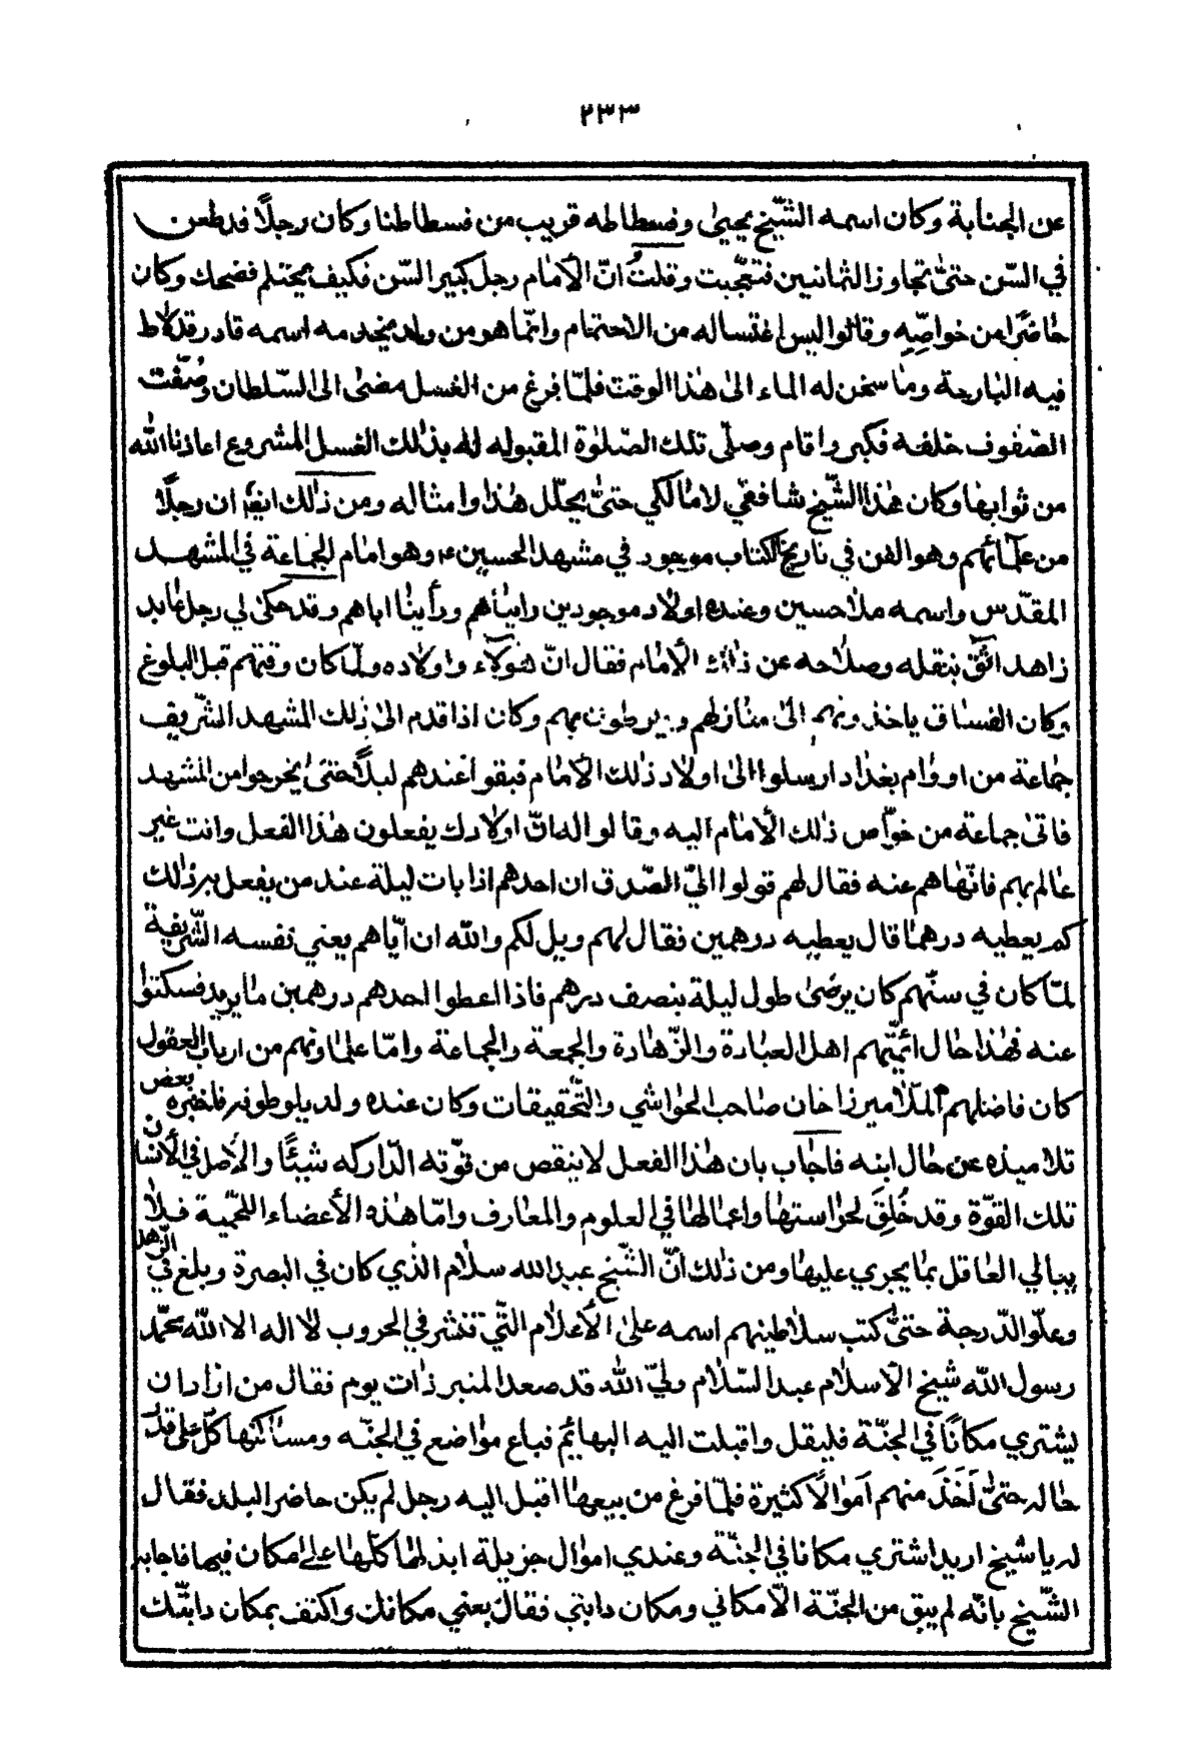 ٢٣٣
عن الجنابة وكان اسمه الشّيخ يحيىٰ وفسطاطه قريب من فسطاطنا وكان رجلًا قد طعن
في السّن حتىّٰ تجاوز الثمانيين فتعجّبت وقلتُ انّ الأمام رجل كبير السّن فكيف يحتلم فضحك وكان
حاضرًا من خواصّه وقالوا ليس اغتساله من الاحتلام وانّما هو من ولد يخدمه اسمه قادر قد لاط
فيه البارحة وما سخن له الماء الىٰ هٰذا الوقت فلمّا فرغ من الغسل مضىٰ الى السّلطان وصُفّت
الصّفوف خلفه فكبر واقام وصلّى تلك الصّلوٰة المقبوله لله بذٰلك الغسل المشروع اعاذنا الله
من ثوابها وكان هٰذا الشّيخ شافعّي لا مالكي حتىّٰ يحلّل هٰذا وامثاله ومن ذٰلك ايضًا ان رجلًا
من علمائهم وهو الٰان في تاريخ الكتاب موجود في مشهد الحسين ع وهو امام الجماعة في المشهد
المقدّس واسمه ملا حسين وعنده اولاد موجودين رايناهم ورأينا اباهم وقد حكىٰ لي رجل عابد
زاهد اثق بنقله وصلاحه عن ذٰلك الأمام فقال انّ هٰؤلاء واولاده ولمّا كان وقتهم قبل البلوغ
كان الفساق ياخذونهم الىٰ منازلهم ويلوطون بهم وكان اذا قدم الىٰ ذٰلك المشهد الشّريف
جماعة من اروام بغداد ارسلوا الىٰ اولاد ذٰلك الأمام فبقوا عندهم ليلًا حتىّٰ يخرجوا من المشهد
فاتىٰ جماعة من خوّاص ذٰلك الأمام اليه وقالو اله انّ اولادك يفعلون هٰذا الفعل وانت غير
عالم بهم فانّهاهم عنه فقال لهم قولوا اليّ الصّدق ان احدهم اذا بات ليلة عند من يفعل به ذٰلك
كم يعطيه درهما قال يعطيه درهمين فقال لهم ويل لكم والله ان اباهم يعني نفسه الشّريفة
لمّا كان في سنّهم كان يرضىٰ طول ليلة بنصف درهم فاذا اعطوا احدهم درهمين ما يريد فسكتوا
عنه فهٰذا حال ائمّتهم اهل العبادة والزّهادة والجمعة والجماعة وامّا علماؤهم من ارباب العقول
كان فاضلهم الملّا ميرزا خان صاحب الحواشي والتّحقيقات وكان عنده ولد يلوطونه فاخبره بعض
تلاميذه عن حال ابنه فاجاب بان هٰذا الفعل لا ينقص من قوّته الدّراكه شيئًا والأصل في الأنسان
تلك القوّة وقد خُلِقَ لحراستها واعمالها في العلوم والمعارف وامّا هٰذه الأعضاء اللحميّة فلا
يبالي العاقل بما يجري عليها ومن ذٰلك انّ الشّيخ عبد الله سلام الّذي كان في البصرة وبلغ في الزّهد
وعلّو الدّرجة حتىّٰ كتب سلاطينهم اسمه علىٰ الأعلام الّتي تنشر في الحروب لا اله الا الله محمّد
رسول الله شيخ الأسلام عبد السّلام وليّ الله قد صعد المنبر ذات يوم فقال من اراد ان
يشتري مكانًا في الجنّة فليقل واقبلت اليه البهائم فباع مواضع في الجنّه ومساكنها كلّ على قدر
حاله حتىّٰ اَخَذَ منهم اَموالًا كثيرة فلمّا فرغ من بيعها اقبل اليه رجل لم يكن حاضر البلد فقال
له يا شيخ اريد اشتري مكانا في الجنّة وعندي اموال جزيلة ابذلها كلّها علىٰ مكان فيها فاجابه
الشّيخ بانّه لم يبق من الجنّة الّا مكاني ومكان دابتي فقال بعني مكانك واكتف بمكان دابّتك